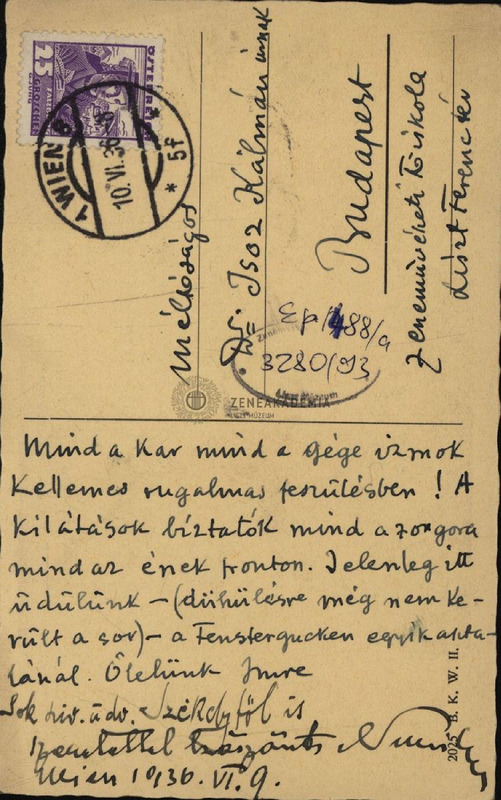 ÖSTERREICH
25
GROSCHEN
1 WIEN
10. VI. 36
* 5f
Méltóságos
Dr. Isoz Kálmán úrnak
Budapest
Zeneművészeti Főiskola
Liszt Ferenc tér
Ep/488/a
3280/93
ZENEAKADÉMIA
Mind a kar mind a gége izmok
kellemes rugalmas feszülésben! A
kilátások bíztatók mind a zongora
mind az ének fronton. Jelenleg itt
üdülünk – (dühülésre még nem ke-
rült a sor) – a Fenstergucken egyik aszta-
lánál. Ölelünk Imre
Sok szív. üdv. Székelyföl is
szeretettel
Wien 1936. VI. 9.
2025 B. K. W. II.